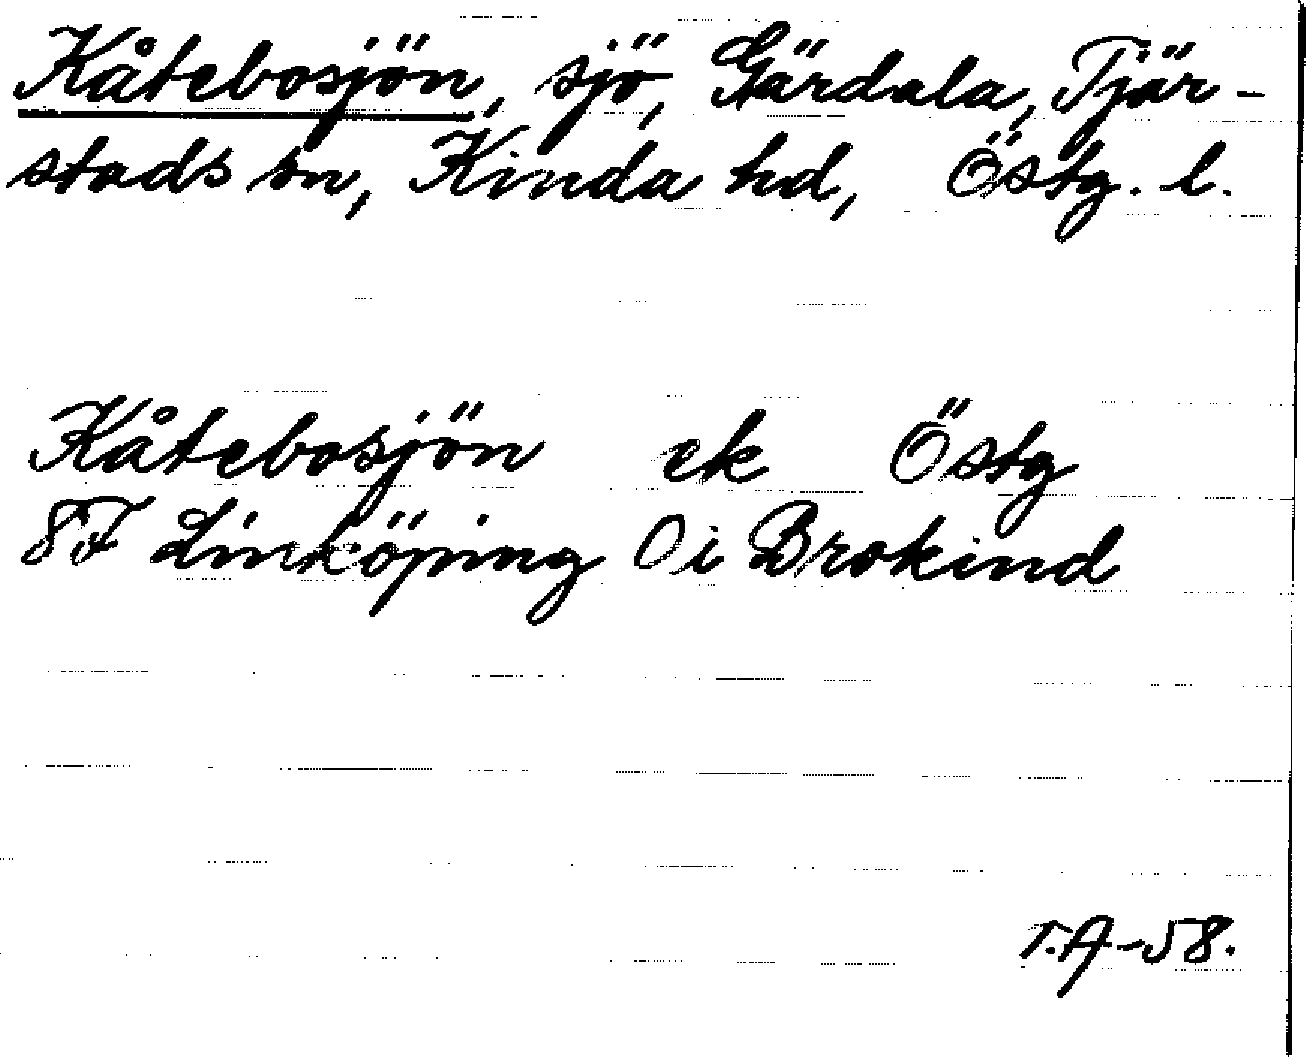 Kåtebosjön, sjö, Gärdala, Tjär-
stads sn, Kinda hd, Östg. l.
Kåtebosjön ek Östg
8F Linköping O i Brokind
T.A-58.